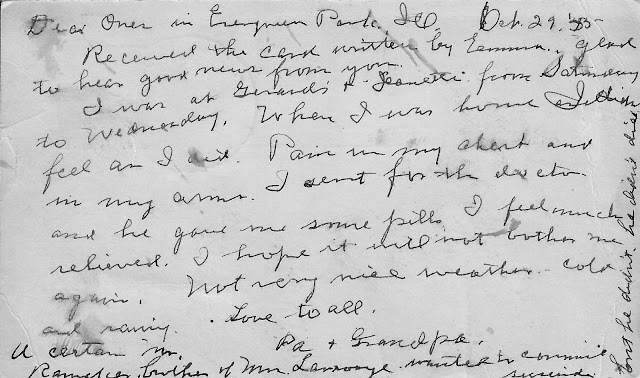 Dear Ones in Evergreen Park, Ill Oct. 29, '55-
Received the card written by Emma, glad
to hear good news from you.
I was at Gerard's & Jeanette from Saturday
to Wednesday. When I was home I didn't
feel as I did. Pain in my chest and
in my arms. I sent for the doctor
and he gave me some pills I feel much
relieved. I hope it will not bother me
again. Not very nice weather - cold
and rainy. Love to all.
Pa + Grandpa.
A certain Mr.
brother of Mrs. wanted to commit
suicide
but he didn't, he didn't die